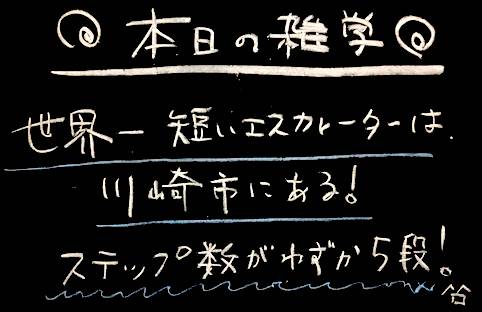 本日の雑学
世界一短いエスカレーターは.
川崎市にある!
ステップ数がわずか5段!